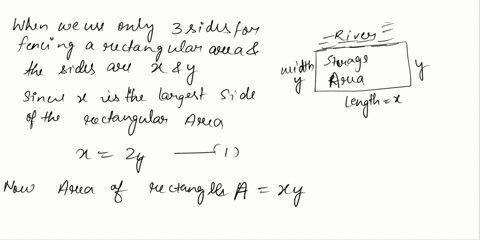 When we use only 3 sides for
fencing a rectangular area &
the sides are x & y
Since x is the largest side
of the rectangular Area
x = 2y —(1)
Now Area of rectangles A = xy
River
width
y
Storage
Area
y
Length = x